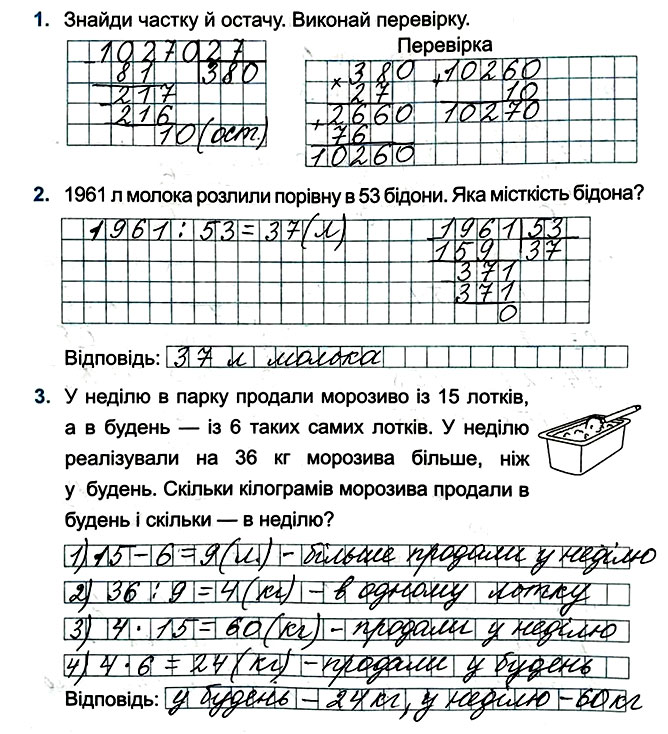 1. Знайди частку й остачу. Виконай перевірку.
Перевірка
10270 27
81 380
217
216
10 (ост.)
× 380 + 10260
27 10
+ 2660 10270
76
10260
2. 1961 л молока розлили порівну в 53 бідони. Яка місткість бідона?
1961 : 53 = 37 (л)
1961 53
159 37
371
371
0
Відповідь: 37 л молока
3. У неділю в парку продали морозиво із 15 лотків,
а в будень — із 6 таких самих лотків. У неділю
реалізували на 36 кг морозива більше, ніж
у будень. Скільки кілограмів морозива продали в
будень і скільки — в неділю?
1) 15 – 6 = 9 (л.) – більше продали у неділю
2) 36 : 9 = 4 (кг) – в одному лотку
3) 4 · 15 = 60 (кг) – продали у неділю
4) 4 · 6 = 24 (кг) – продали у будень
Відповідь: у будень – 24 кг, у неділю – 60 кг